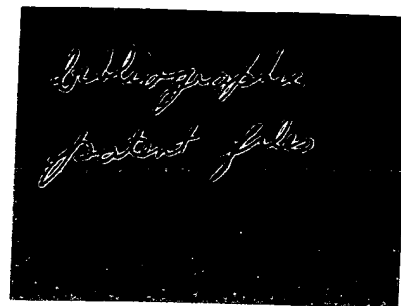 bibliographic
patent files